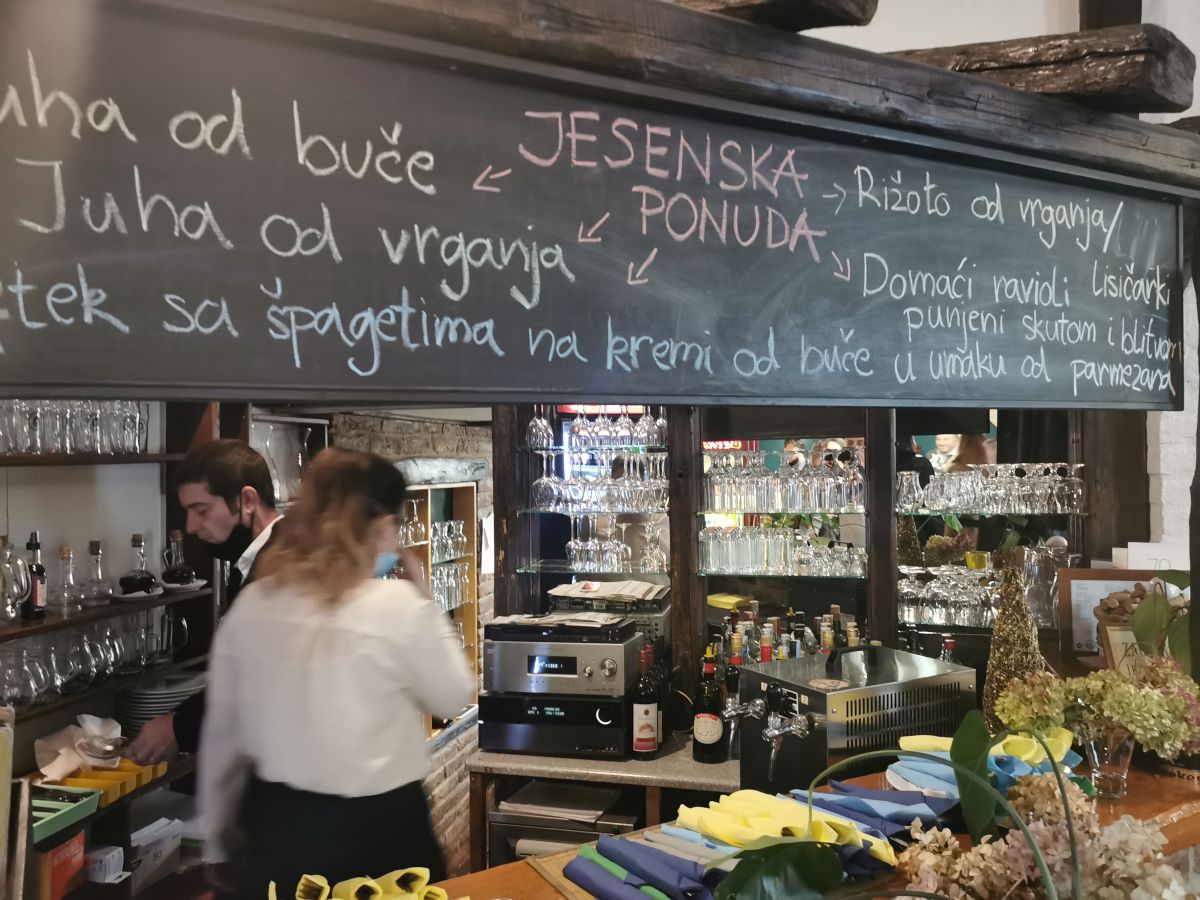 uha od buče
JESENSKA
PONUDA
Juha od vrganja
tek sa špagetima na kremi od buče
Rižoto od vrganja/
lisičarki
Domaći ravioli
punjeni skutom i blitvom
u umaku od parmezana